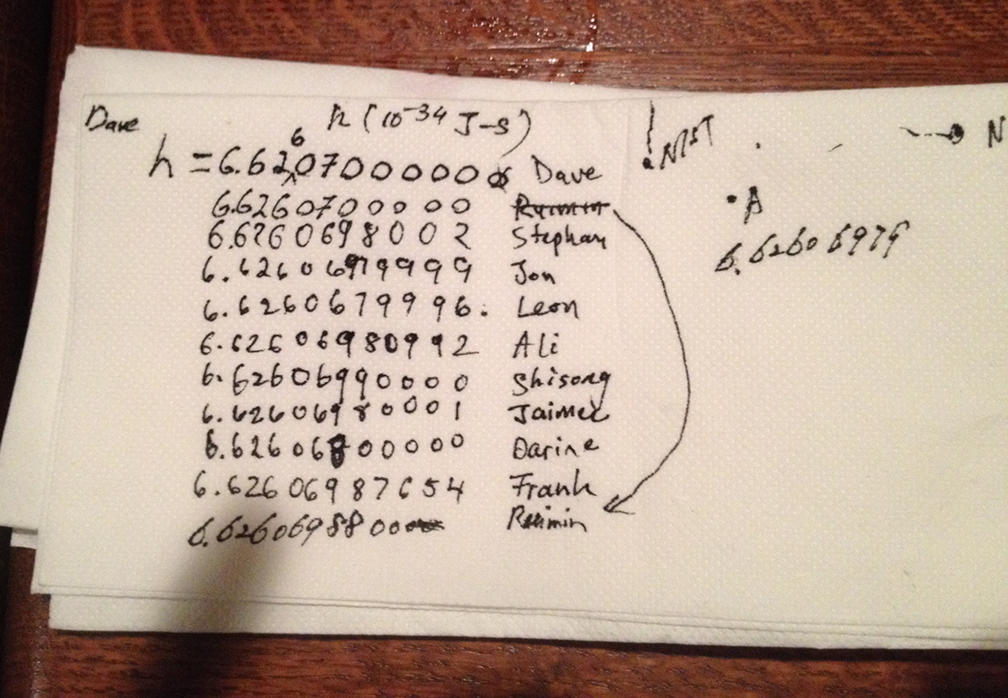 Dave
h (10-34 J-S)
h = 6.6260700000 Dave
6.626070000 Ruimin
6.6260698002 Stephan
6.62606979999 Jon
6.6260679996. Leon
6.62606980992 Ali
6.62606990000 Shisong
6.62606980001 Jaimee
6.62606800000 Darine
6.62606987654 Frank
6.626069880 Ruimin
NIST
N
A
6.62606979